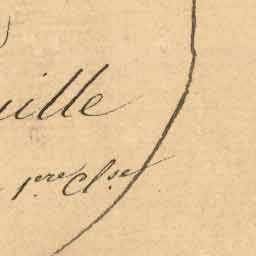 uille
1ère Clse